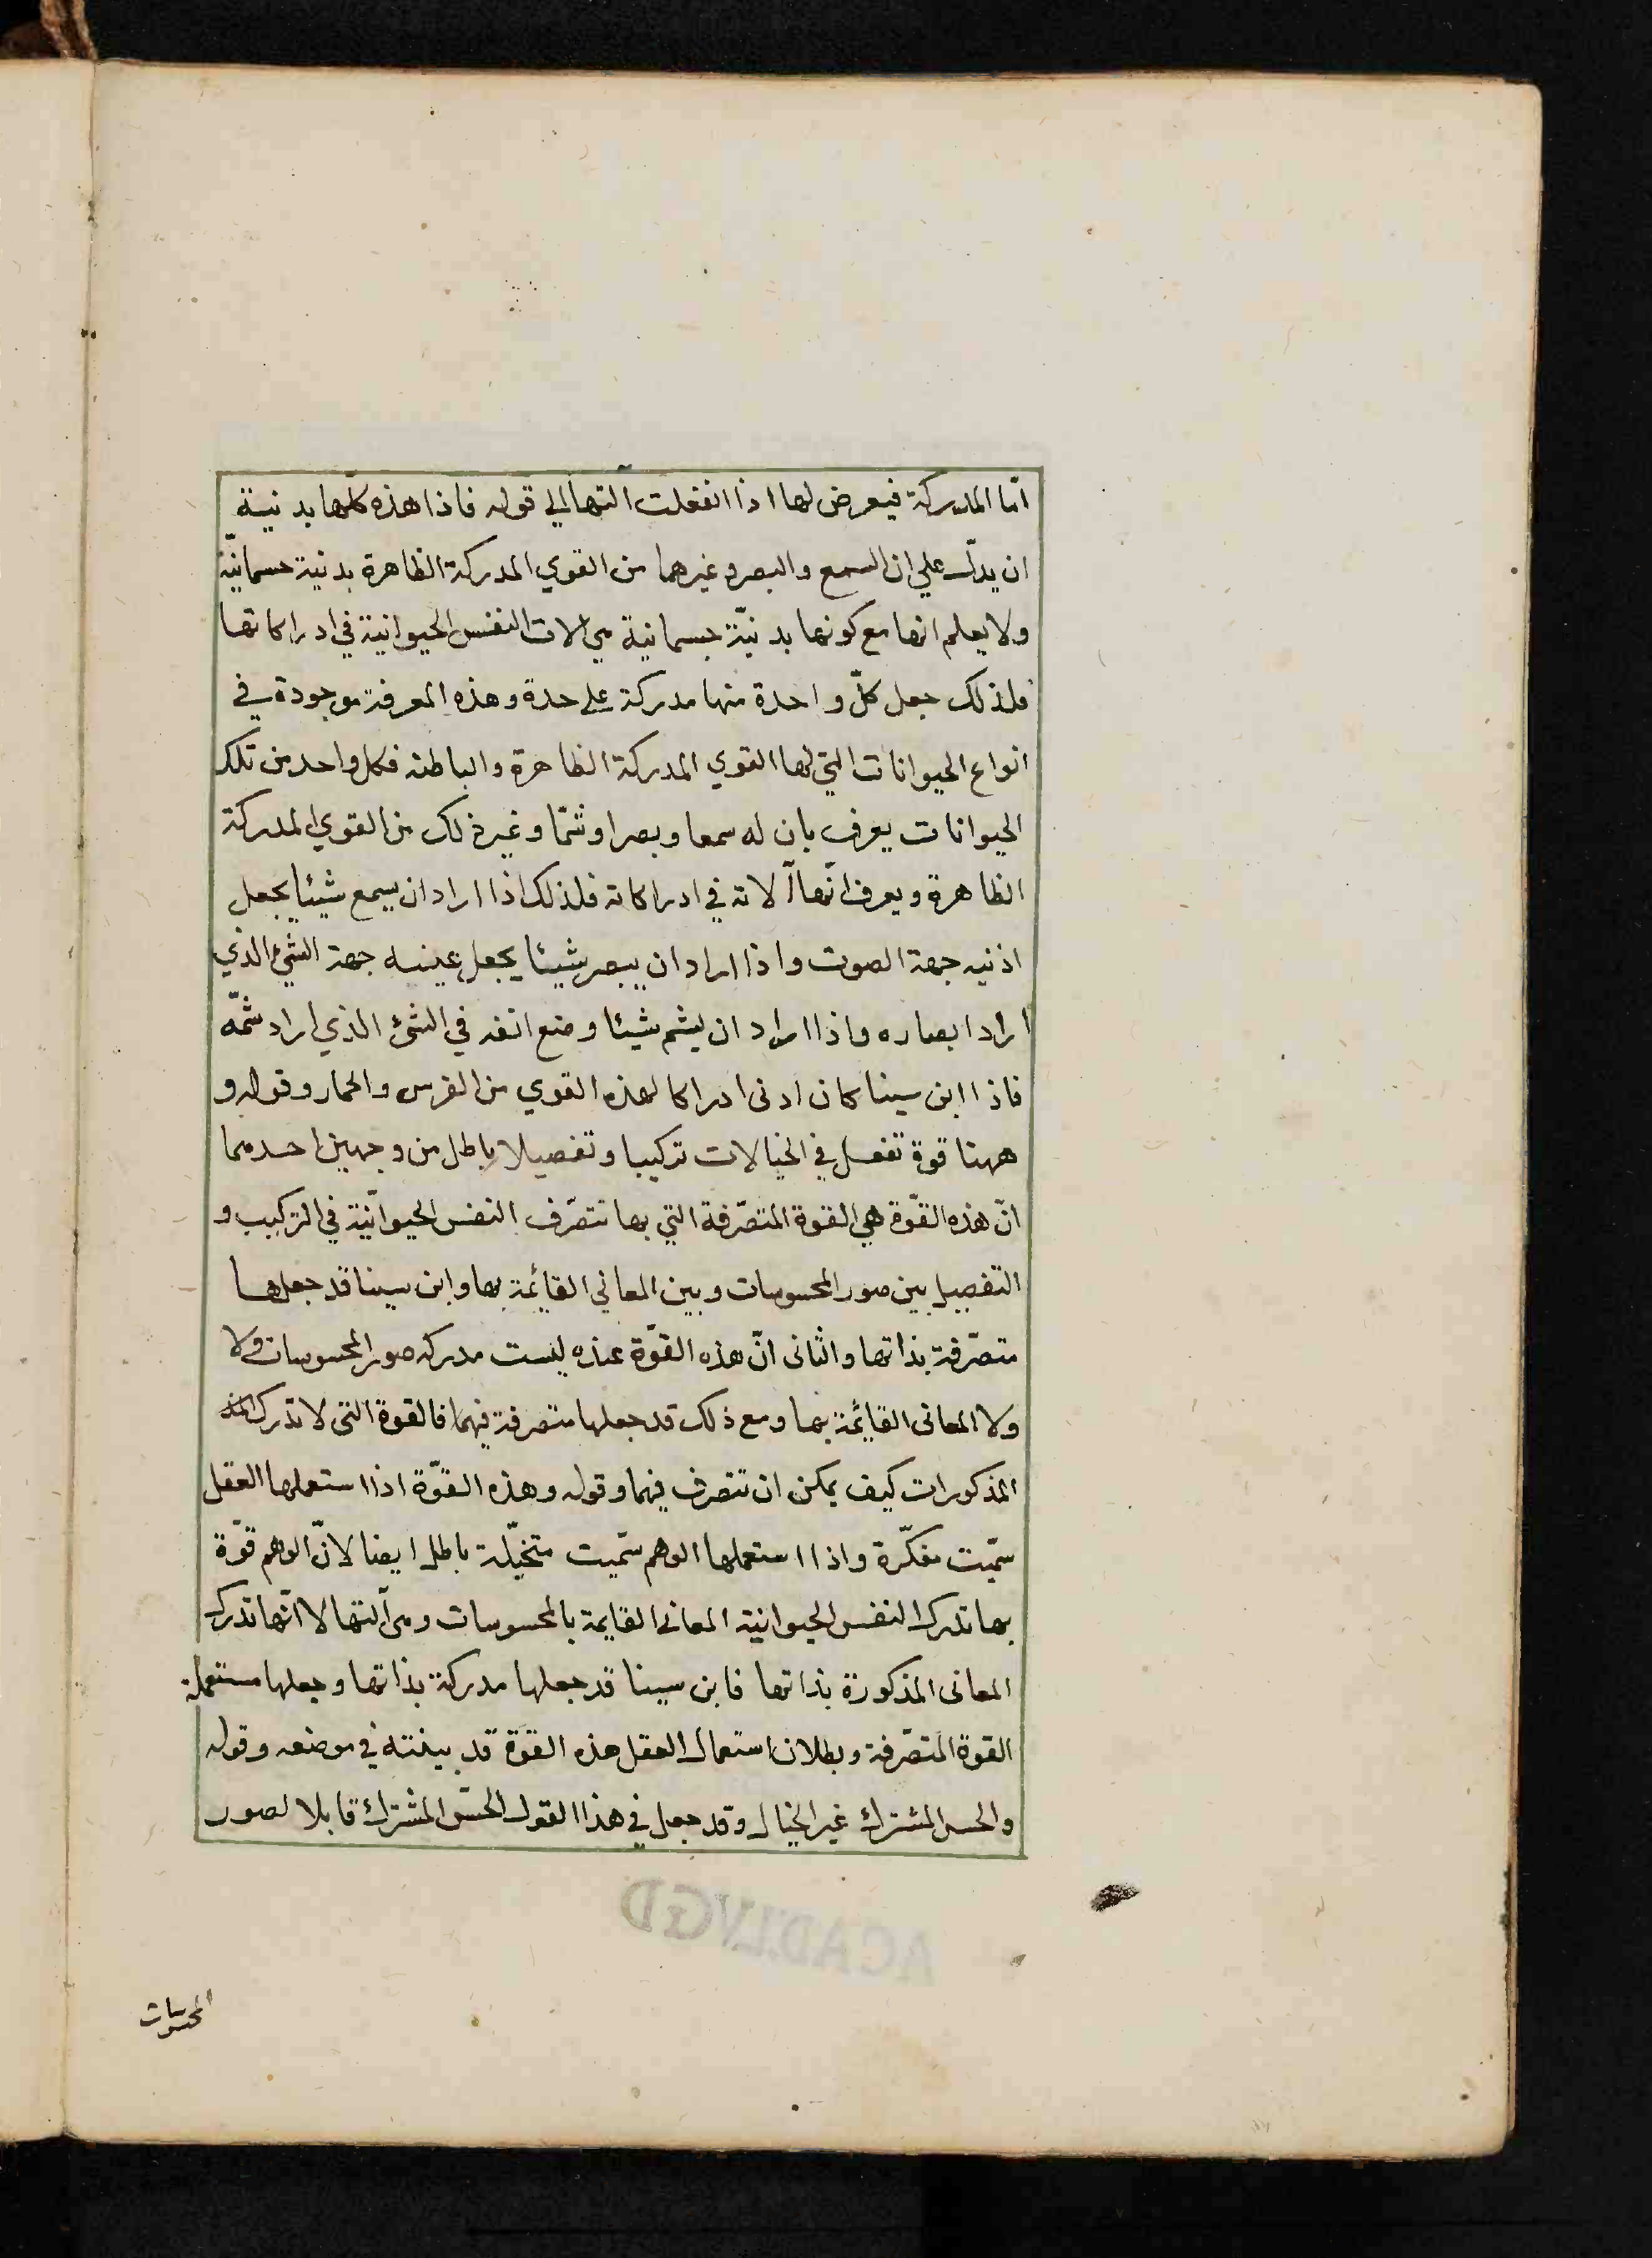 امّا المدركة فيعرض لها اذا انفعلت التها الي قوله فاذا هذه كلّها بدنية
ان يدلّ علي ان السمع والبصر وغيرهما من القوي المدركة الظاهرة بدنية جسمانيّة
ولا يعلم انها مع كونها بدنيّة جسمانية هي الات النفس الحيوانية في ادراكاتها
فلذلك جعل كلّ واحدة منها مدركة علي حدة وهذه المعرفة موجودة في
انواع الحيوانات التي لها القوي المدركة الظاهرة والباطنه فكل واحد من تلك
الحيوانات يعرف بان له سمعا وبصرا وشمّا وغير ذلك من القوي المدركة
الظاهرة ويعرف انّها آلاته في ادراكاته فلذلك اذا اراد ان يسمع شيئا يجعل
اذنيه جهة الصوت واذا اراد ان يبصر شيئا يجعل عينيه جهة الشيء الذي
اراد ابصاره واذا اراد ان يشم شيئا وضع انفه في الشئ الذي اراد شمّه
فاذا ابن سينا كان ادنى ادراكا لهذه القوي من الفرس والحمار وقوله و
ههنا قوة تفعل في الخيالات تركيبا وتفصيلا باطل من وجهين احدهما
انّ هذه القوّة هي القوة المتصّرفة التي بها تتصّرف النفس الحيوانيّة في التركيب و
التفصيل بين صور المحسوسات وبين المعاني القائمة بها وابن سينا قد جعلها
متصّرفة بذاتها والثانى انّ هذه القوّة عنده ليست مدركه صور المحسوسات ولا
ولا المعانى القائمة بها ومع ذلك قد جعلها متصرفة فيهما فالقوة التى لا تدرك
المذكورات كيف يمكن ان تتصرف فيهما وقوله وهذه القوّة اذا استعملها العقل
سمّيت مفكّرة واذا استعملها الوهم سمّيت متخيّلة باطل ايضا لانّ الوهم قوّة
بها تدرك النفس الحيوانية المعاني القايمة بالمحسوسات وهى آلتها لا انّها تدرك
المعانى المذكورة بذاتها فابن سينا قد جعلها مدركة بذاتها وجعلها مستعملة
القوة المتصّرفة وبطلان استعمال العقل هذه القوّة قد بينته في موضعه وقوله
والحس المشترك غير الخيال وقد جعل في هذا القول الحسّ المشترك قابلا لصور
المحسوسات
ACAD.LVGD